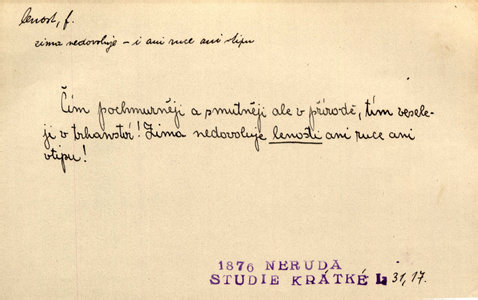 lenost, f.
zima nedovoluje – i ani ruce ani vtipu
Čím pochmurněji a smutněji ale v přírodě, tím vesele-
ji v trhanství! Zima nedovoluje lenosti ani ruce ani
vtipu!
1876 NERUDA
STUDIE KRÁTKÉ I, 31, 17.